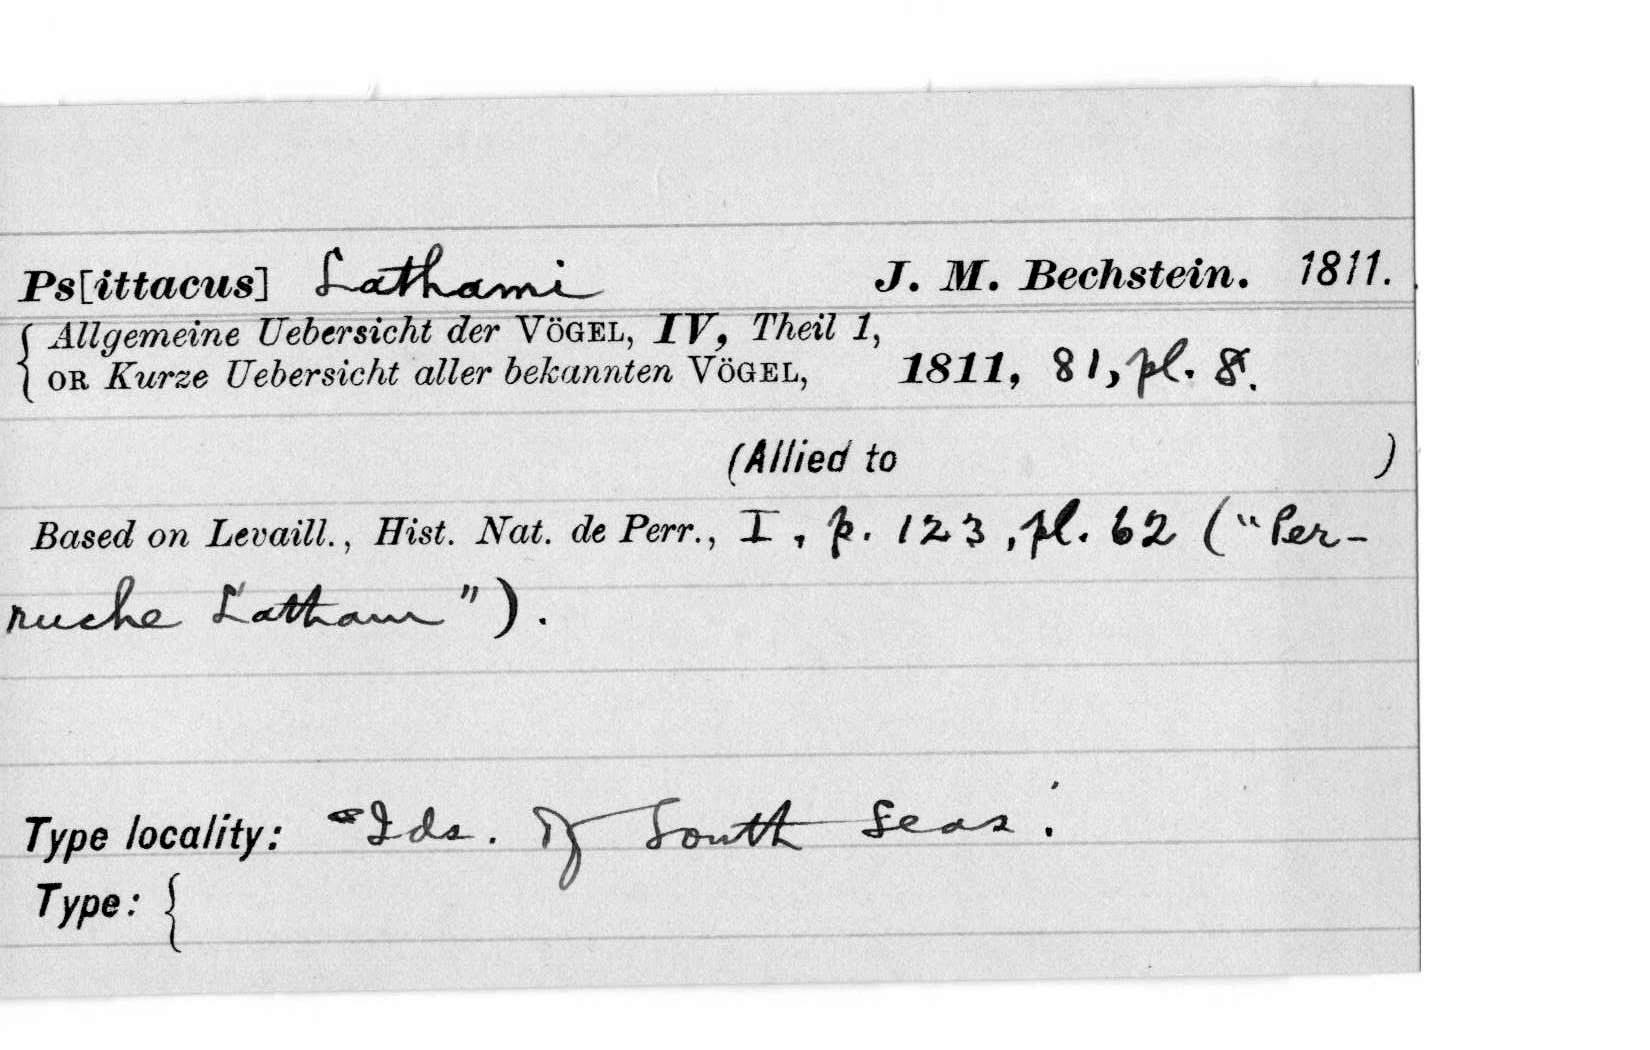 Ps[ittacus] Lathami J. M. Bechstein. 1811.
{ Allgemeine Uebersicht der VÖGEL, IV, Theil 1,
OR Kurze Uebersicht aller bekannten VÖGEL, 1811, 81, pl. 8.
(Allied to )
Based on Levaill., Hist. Nat. de Perr., I, p. 123, pl. 62 ("Per-
ruche Latham").
Type locality: "Ids. of South Seas.'
Type: {